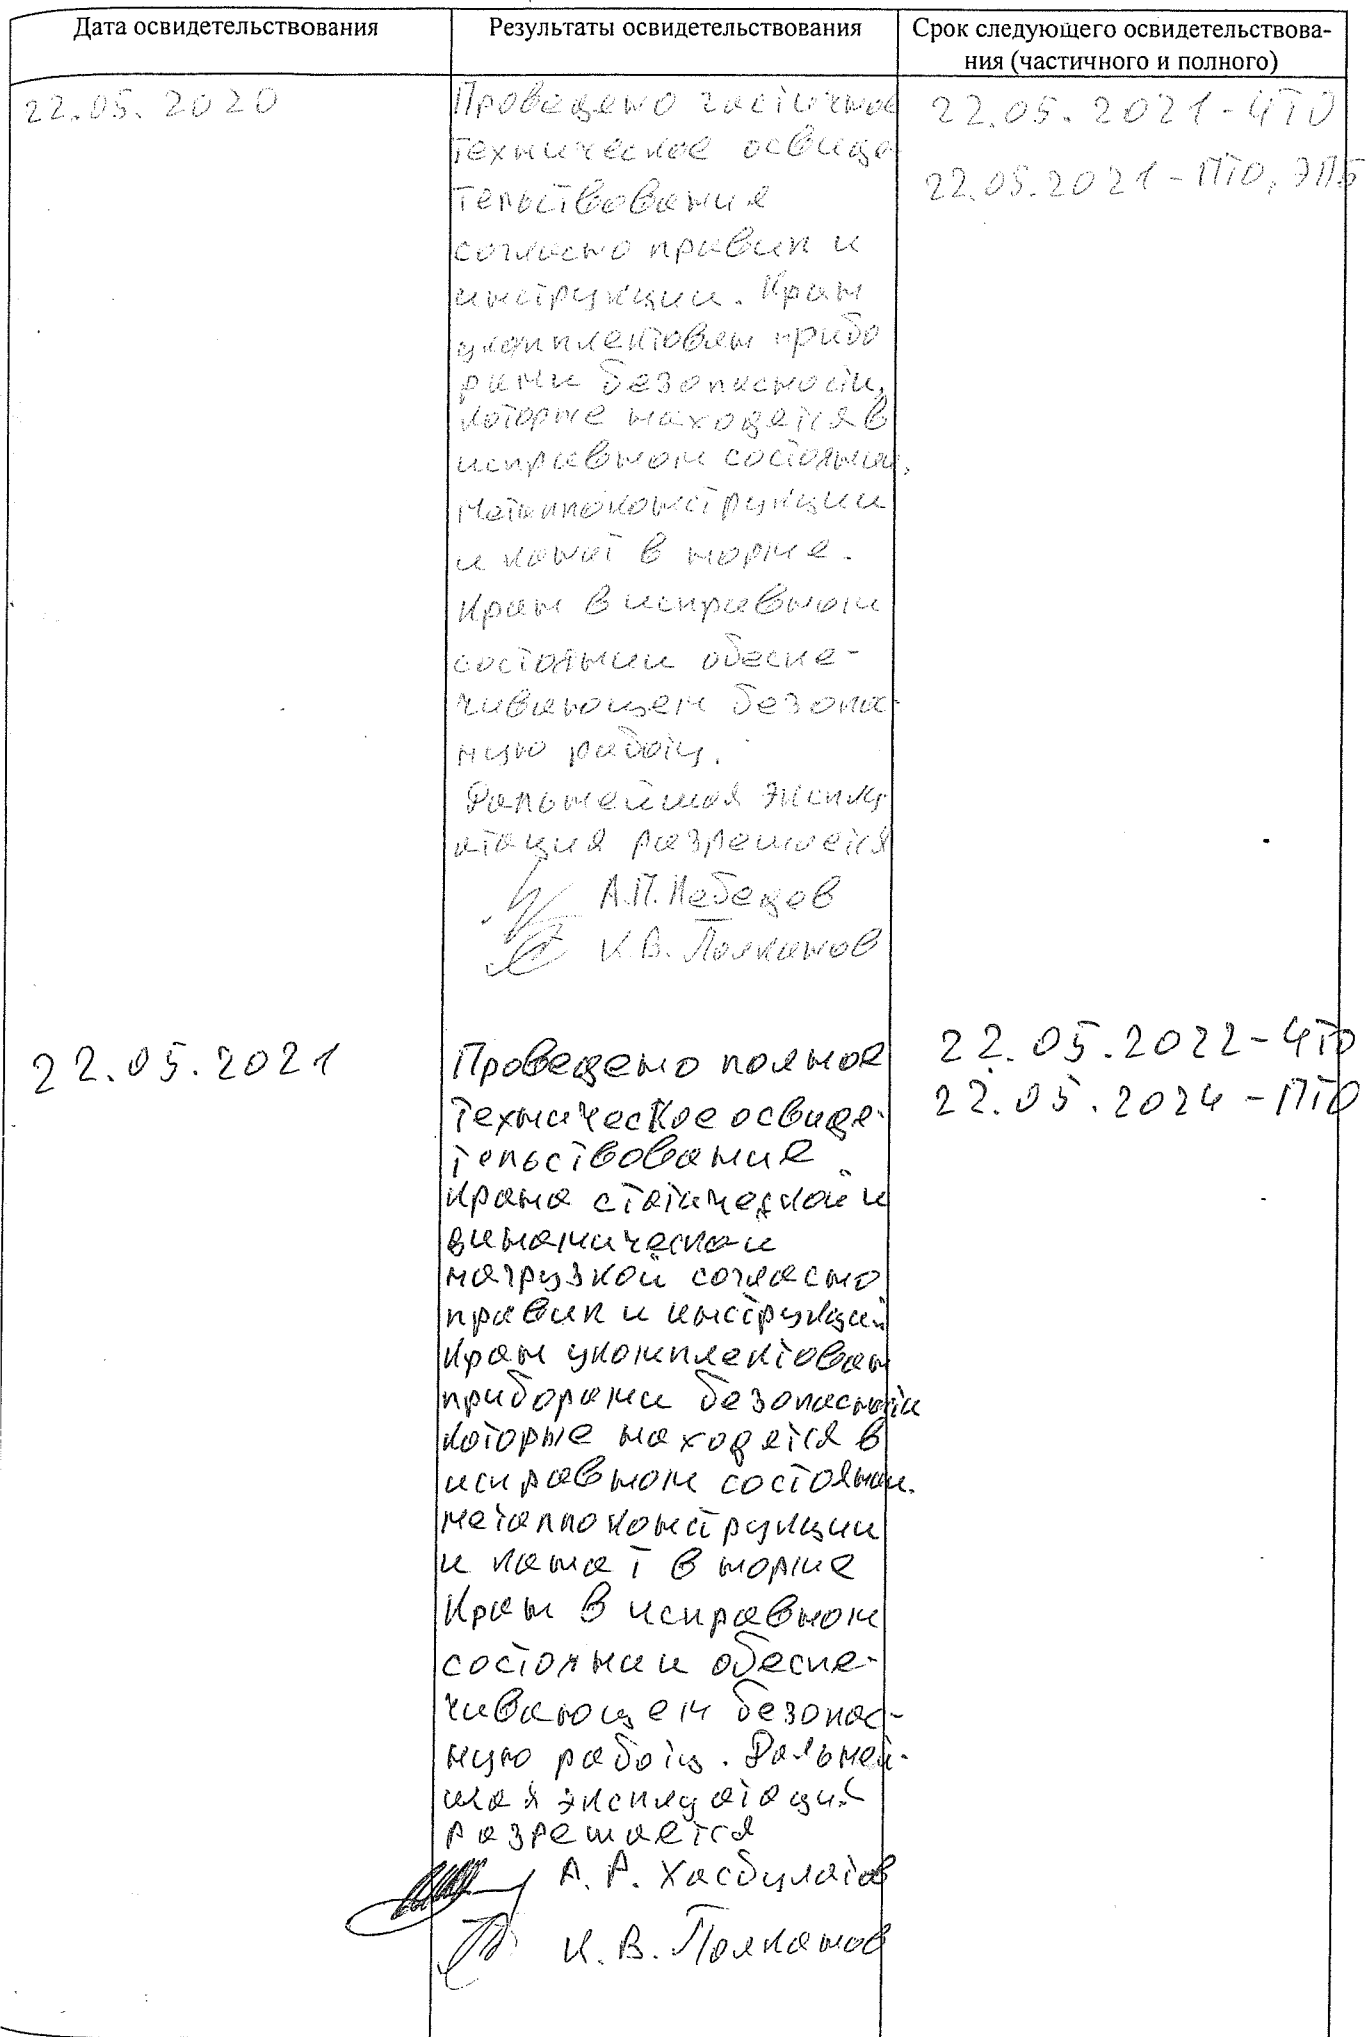 Дата освидетельствования
Результаты освидетельствования
Срок следующего освидетельствова-
ния (частичного и полного)
22.05.2020
Проведено частичное
техническое освиде
тельствование
согласно правил и
инструкции. Кран
укомплектован прибо
рами безопасности,
которые находятся в
исправном состоянии,
металлоконструкции
и канат в норме.
Кран в исправном
состоянии обеспе-
чивающем безопас-
ную работу.
Дальнейшая эксплу
атация разрешается
А.П. Лебедев
К.В. Полканов
22.05.2021-ЧТО
22.05.2021-ПТО, ЭПБ
22.05.2021
Проведено полное
техническое освиде-
тельствование
крана статической и
динамической
нагрузкой согласно
правил и инструкций
Кран укомплектован
приборами безопасности
которые находятся в
исправном состоянии.
металлоконструкции
и канат в норме
Кран в исправном
состоянии обеспе-
чивающем безопас-
ную работу. Дальней-
шая эксплуатация
разрешается
А.Р. Хасбулатов
К.В. Полканов
22.05.2022-ЧТО
22.05.2024-ПТО